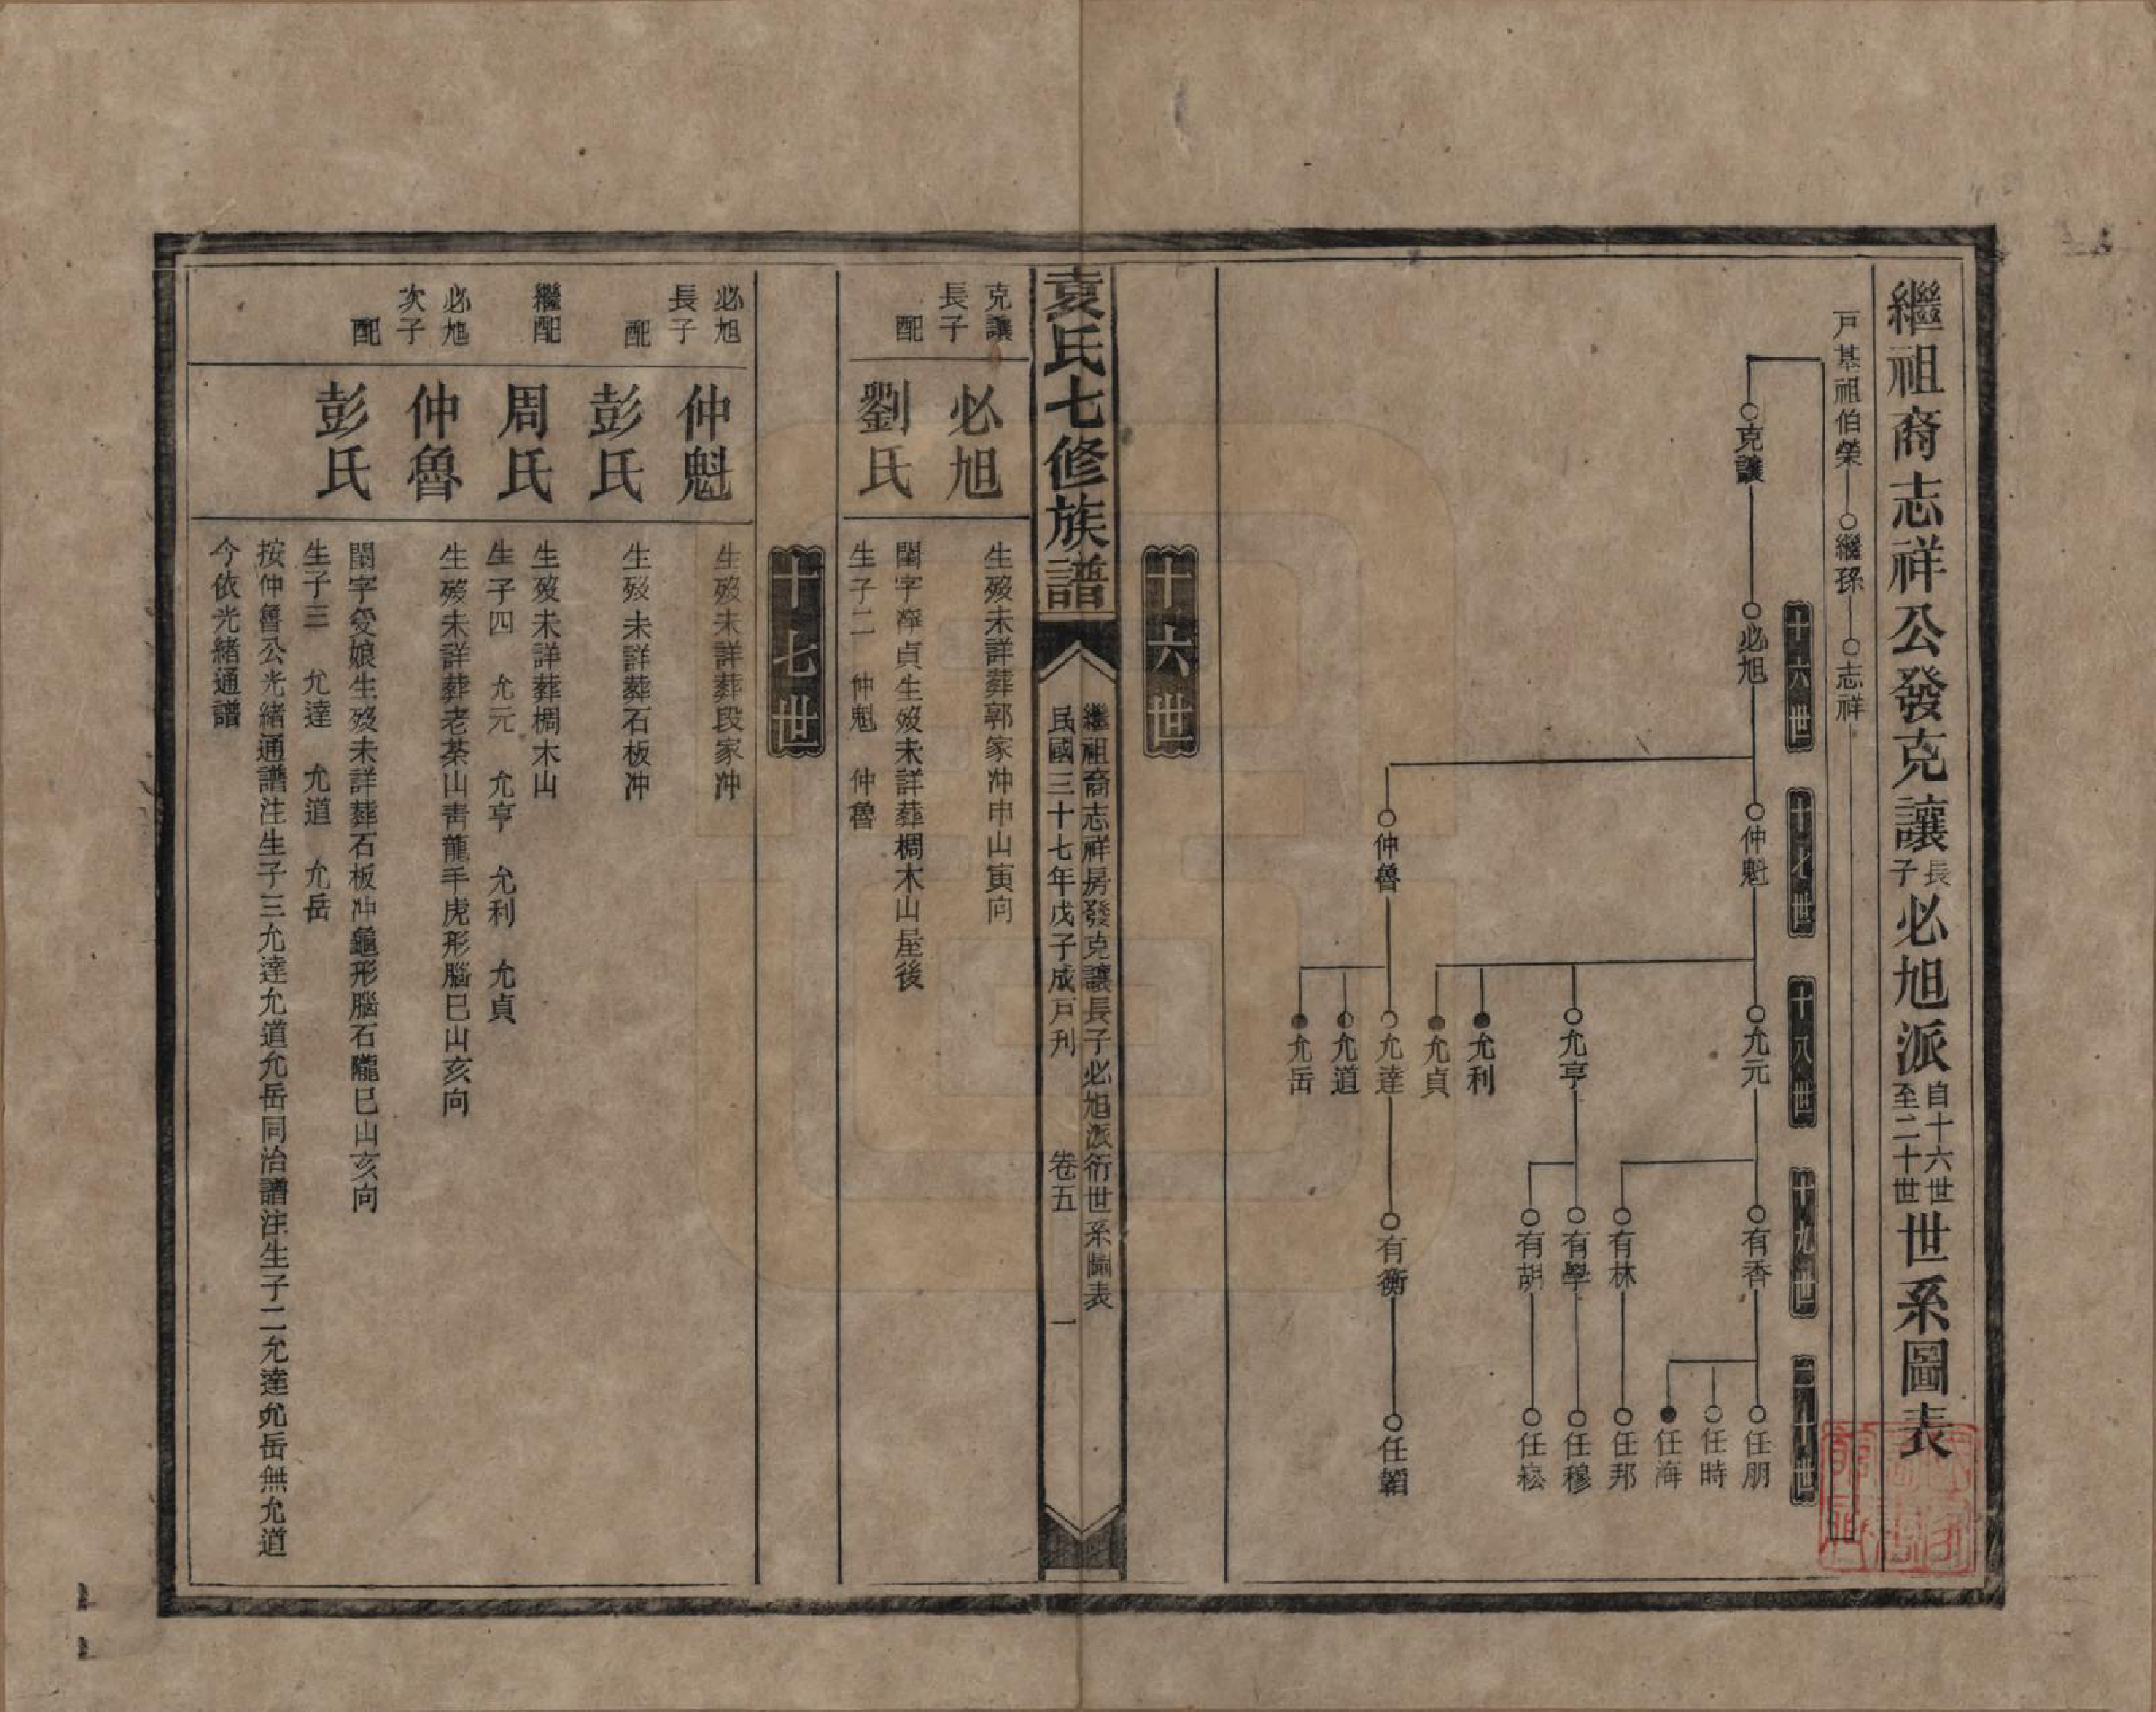 繼祖裔志祥公發克讓長子必旭派自十六世至二十世世系圖表
戶基祖伯榮 繼孫 志祥
十六世
十七世
十八世
十九世
二十世
克讓
必旭
仲魁
允元
有香
任朋
任時
任海
有林
任邦
允亨
有學
任穆
有胡
任崧
允利
允貞
仲魯
允達
有衡
任韜
允道
允岳
十六世
袁氏七修族譜
繼祖裔志祥房發克讓長子必旭派衍世系圖表
民國三十七年戊子成戶刊 卷五 一
克讓長子 必旭 生歿未詳葬郭家沖申山寅向
配 劉氏 閨字淨貞生歿未詳葬榈木山屋後
生子二 仲魁 仲魯
十七世
必旭長子 仲魁 生歿未詳葬段家沖
配 彭氏 生歿未詳葬石板沖
繼配 周氏 生歿未詳葬榈木山
生子四 允元 允亨 允利 允貞
必旭次子 仲魯 生歿未詳葬老茶山靑龍手虎形腦巳山亥向
配 彭氏 閨字愛娘生歿未詳葬石板沖龜形腦石隴巳山亥向
生子三 允達 允道 允岳
按仲魯公光緖通譜注生子三允達允道允岳同治譜注生子二允達允岳無允道
今依光緖通譜